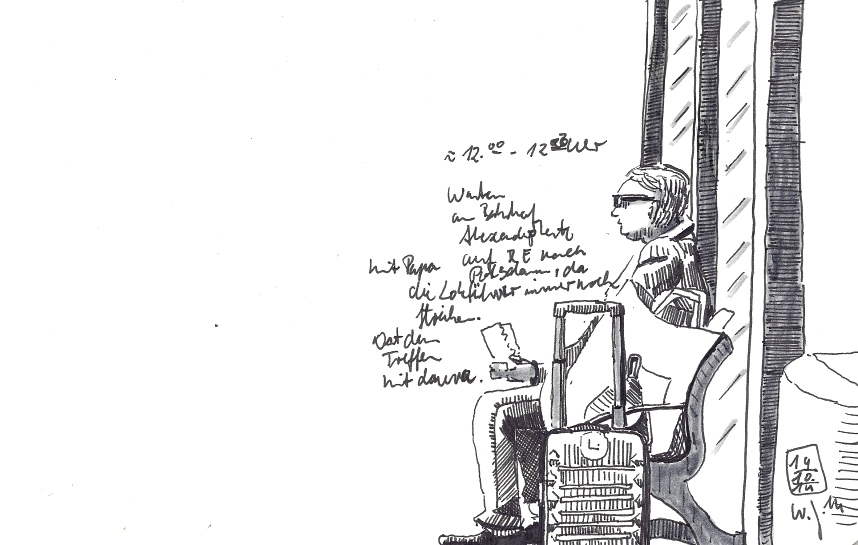 ≈ 12.00 - 12 30 Uhr
Warten
am Bahnhof
Alexanderplatz
mit Papa auf RE nach
Potsdam, da
die Lokführer immer noch
streiken.
Treffen
mit
14
10
14
W.J. 14